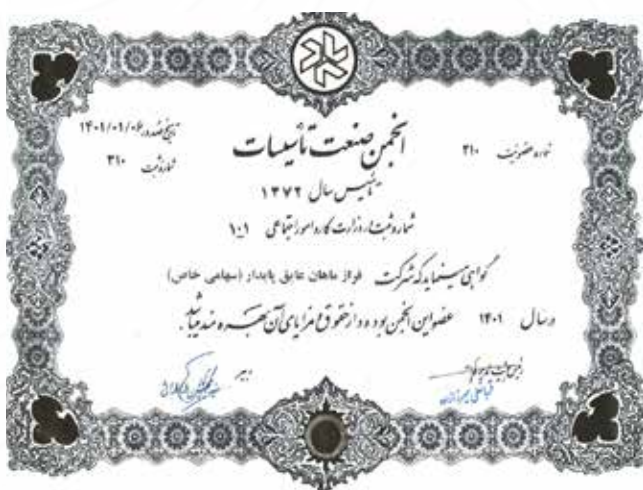 شماره عضویت ۲۱۰
تاریخ صدور ۱۴۰۱/۰۱/۰۶
شماره ثبت ۳۱۰
انجمن صنعت تأسیسات
تأسیس سال ۱۳۷۲
شماره ثبت در وزارت کار و امور اجتماعی ۱۰۱
گواهی مینماید که شرکت فراز ماهان عایق پایدار (سهامی خاص)
در سال ۱۴۰۱ عضو این انجمن بوده و از حقوق و مزایای آن بهره مند میباشد.
رئیس هیئت مدیره
دبیر